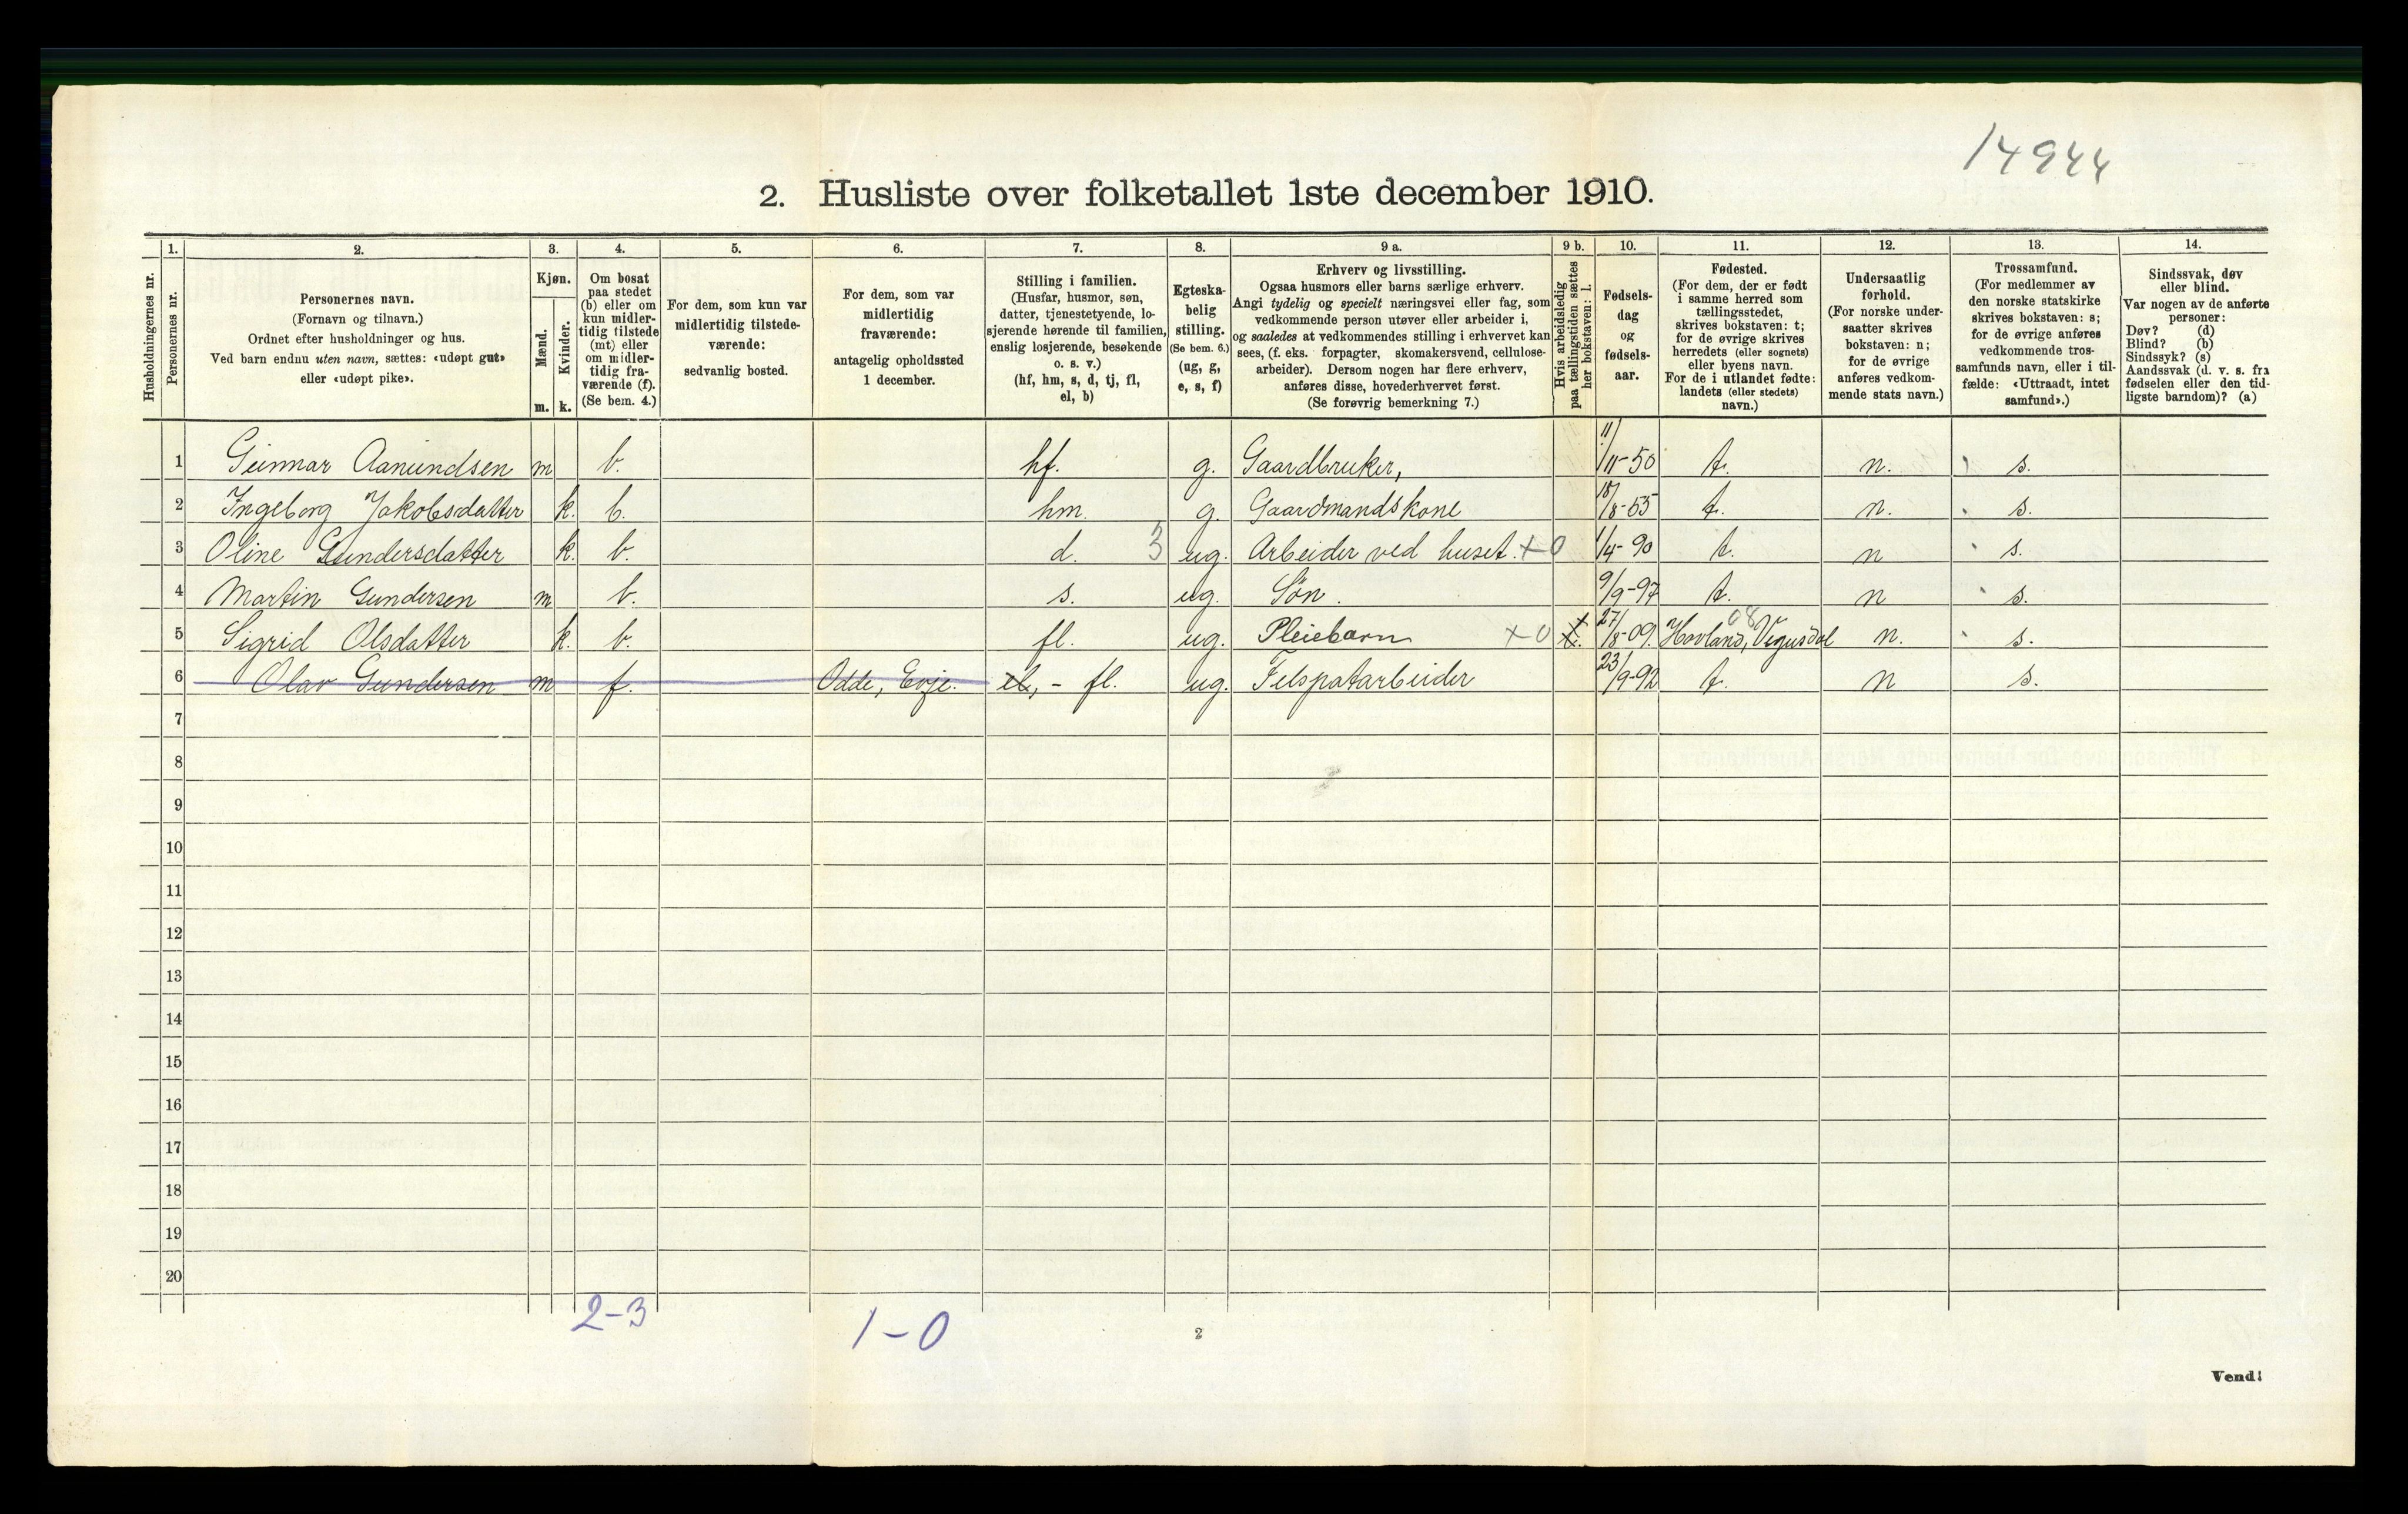 14944
2. Husliste over folketallet 1ste december 1910.
1. 2. 3. 4. 5. 6. 7. 8. 9 a. 9 b. 10. 11. 12. 13. 14.
Husholdningernes nr.
Personernes nr.
Personernes navn.
(Fornavn og tilnavn.)
Ordnet efter husholdninger og hus.
Ved barn endnu uten navn, sættes: «udøpt gut»
eller «udøpt pike».
Kjøn.
Mænd.
Kvinder.
m. k.
Om bosat
paa stedet
(b) eller om
kun midler-
tidig tilstede
(mt) eller
om midler-
tidig fra-
værende (f).
(Se bem. 4.)
For dem, som kun var
midlertidig tilstede-
værende:
sedvanlig bosted.
For dem, som var
midlertidig
fraværende:
antagelig opholdssted
1 december.
Stilling i familien.
(Husfar, husmor, søn,
datter, tjenestetyende, lo-
sjerende hørende til familien,
enslig losjerende, besøkende
o. s. v.)
(hf, hm, s, d, tj, fl,
el, b)
Egteska-
belig
stilling.
(Se bem. 6.)
(ug, g,
e, s, f)
Erhverv og livsstilling.
Ogsaa husmors eller barns særlige erhverv.
Angi tydelig og specielt næringsvei eller fag, som
vedkommende person utøver eller arbeider i,
og saaledes at vedkommendes stilling i erhvervet kan
sees, (f. eks. forpagter, skomakersvend, cellulose-
arbeider). Dersom nogen har flere erhverv,
anføres disse, hovederhvervet først.
(Se forøvrig bemerkning 7.)
Hvis arbeidsledig
paa tællingstiden sættes
her bokstaven: l.
Fødsels-
dag
og
fødsels-
aar.
Fødested.
(For dem, der er født
i samme herred som
tællingsstedet,
skrives bokstaven: t;
for de øvrige skrives
herredets (eller sognets)
eller byens navn.
For de i utlandet fødte:
landets (eller stedets)
navn.)
Undersaatlig
forhold.
(For norske under-
saatter skrives
bokstaven: n;
for de øvrige
anføres vedkom-
mende stats navn.)
Trossamfund.
(For medlemmer av
den norske statskirke
skrives bokstaven: s;
for de øvrige anføres
vedkommende tros-
samfunds navn, eller i til-
fælde: «Uttraadt, intet
samfund».)
Sindssvak, døv
eller blind.
Var nogen av de anførte
personer:
Døv? (d)
Blind? (b)
Sindssyk? (s)
Aandssvak (d. v. s. fra
fødselen eller den tid-
ligste barndom)? (a)
1 Gunnar Aanundsen m b. hf. g. Gaardbruker, 11/11-50 t. n. s.
2 Ingeborg Jakobsdatter k. b. hm. g. Gaardmandskone 18/8-55 t. n. s.
3 Oline Gundersdatter k. b. d. 3 ug. Arbeider ved huset. +0 1/4-90 t. n s.
4 Martin Gundersen m b. s. ug. Søn. 9/9-97 t. n s.
5 Sigrid Olsdatter k. b. fl. ug. Pleiebarn +0 t. 27/8-09. Hovland, Vegusdal 08 n. s.
6 Olav Gundersen m f. Odde, Evje. el, - fl. ug. Felspatarbeider 23/9-92 t. n s.
7
8
9
10
11
12
13
14
15
16
17
18
19
20
2-3
1-0
2
Vend!